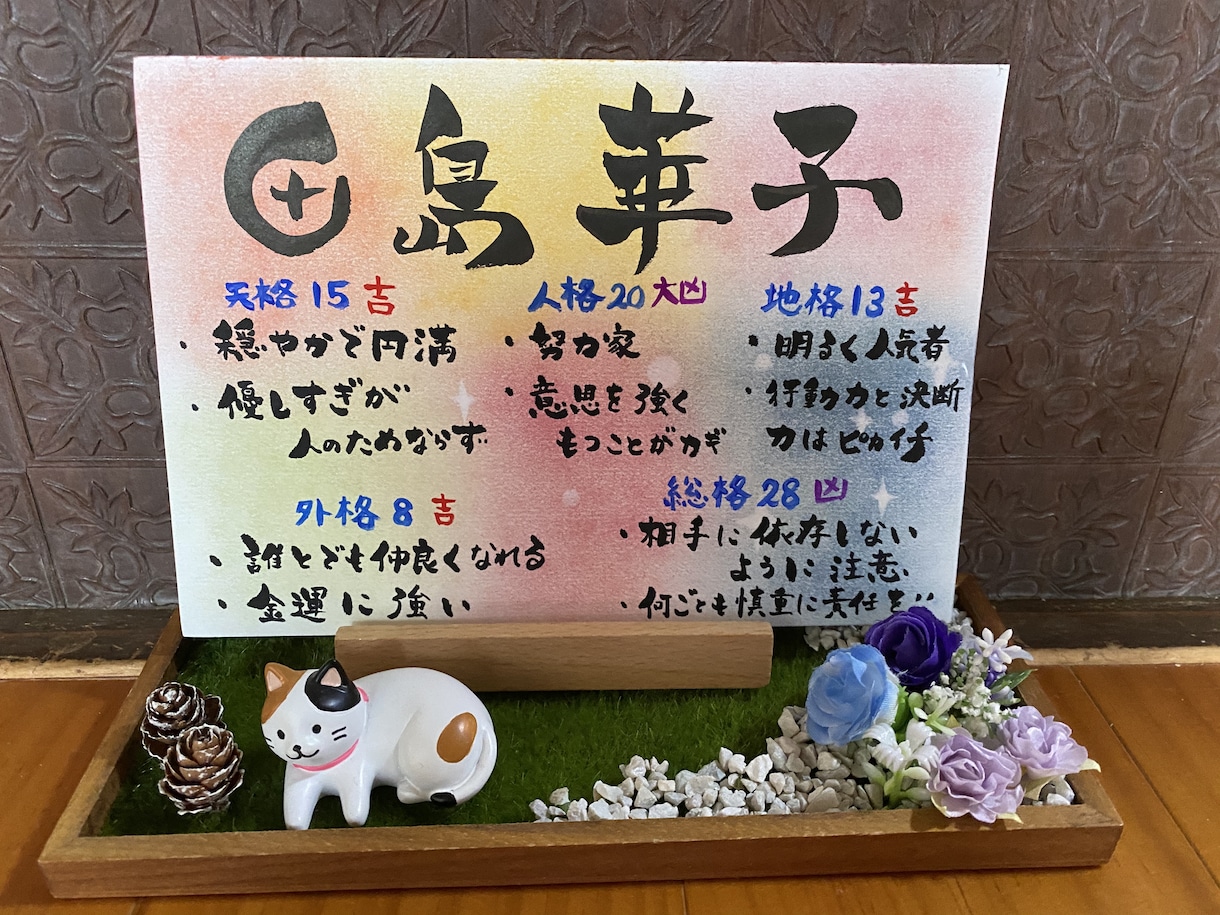 田島華子
天格15 吉
・穏やかで円満
・優しすぎが
人のためならず
人格20 大凶
・努力家
・意思を強く
もつことがカギ
地格13 吉
・明るく人気者
・行動力と決断
力はピカイチ
外格8 吉
・誰とでも仲良くなれる
・金運に強い
総格28 凶
・相手に依存しない
ように注意
・何ごとも慎重に責任を